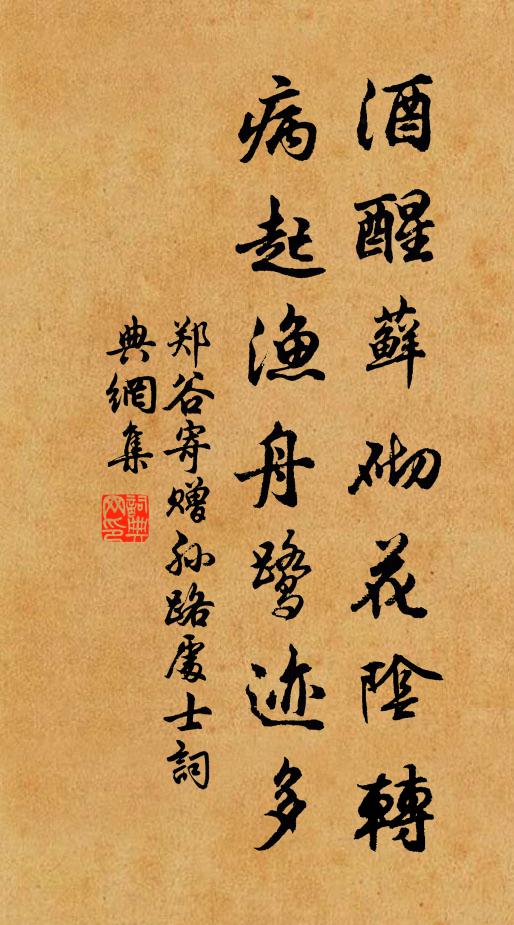 酒醒蘚砌花陰轉
病起漁舟鷺迹多
郑谷寄赠孙路處士詞
典網集
詞典網印